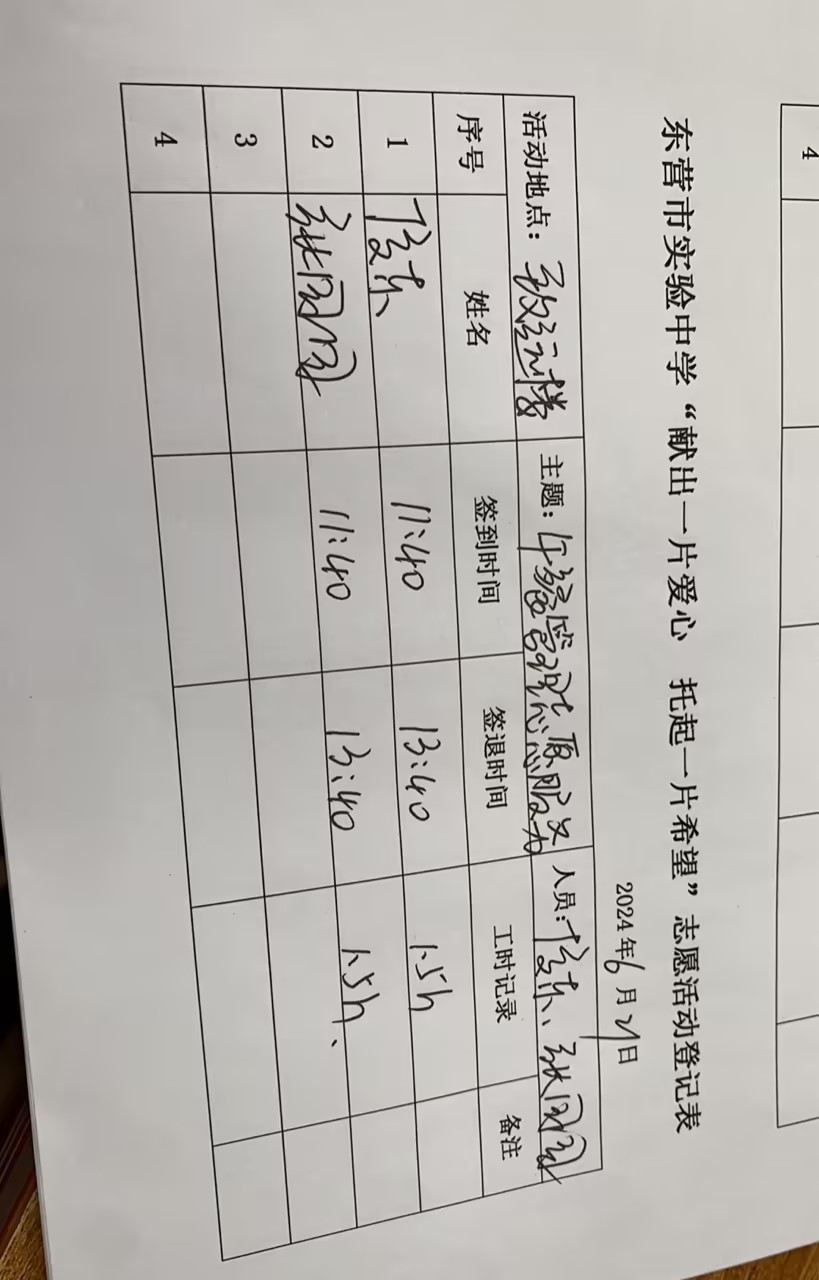 4
东营市实验中学“献出一片爱心 托起一片希望”志愿活动登记表
2024年6月21日
活动地点： 主题：午餐管理志愿服务 人员：
序号 姓名 签到时间 签退时间 工时记录 备注
1 11:40 13:40 1.5h
2 11:40 13:40 1.5h、
3
4